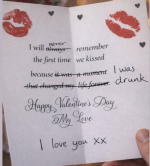 never
I will always remember
the first time we kissed
because it was a moment I was
that changed my life forever. drunk
Happy Valentine's Day
My Love
I love you xx